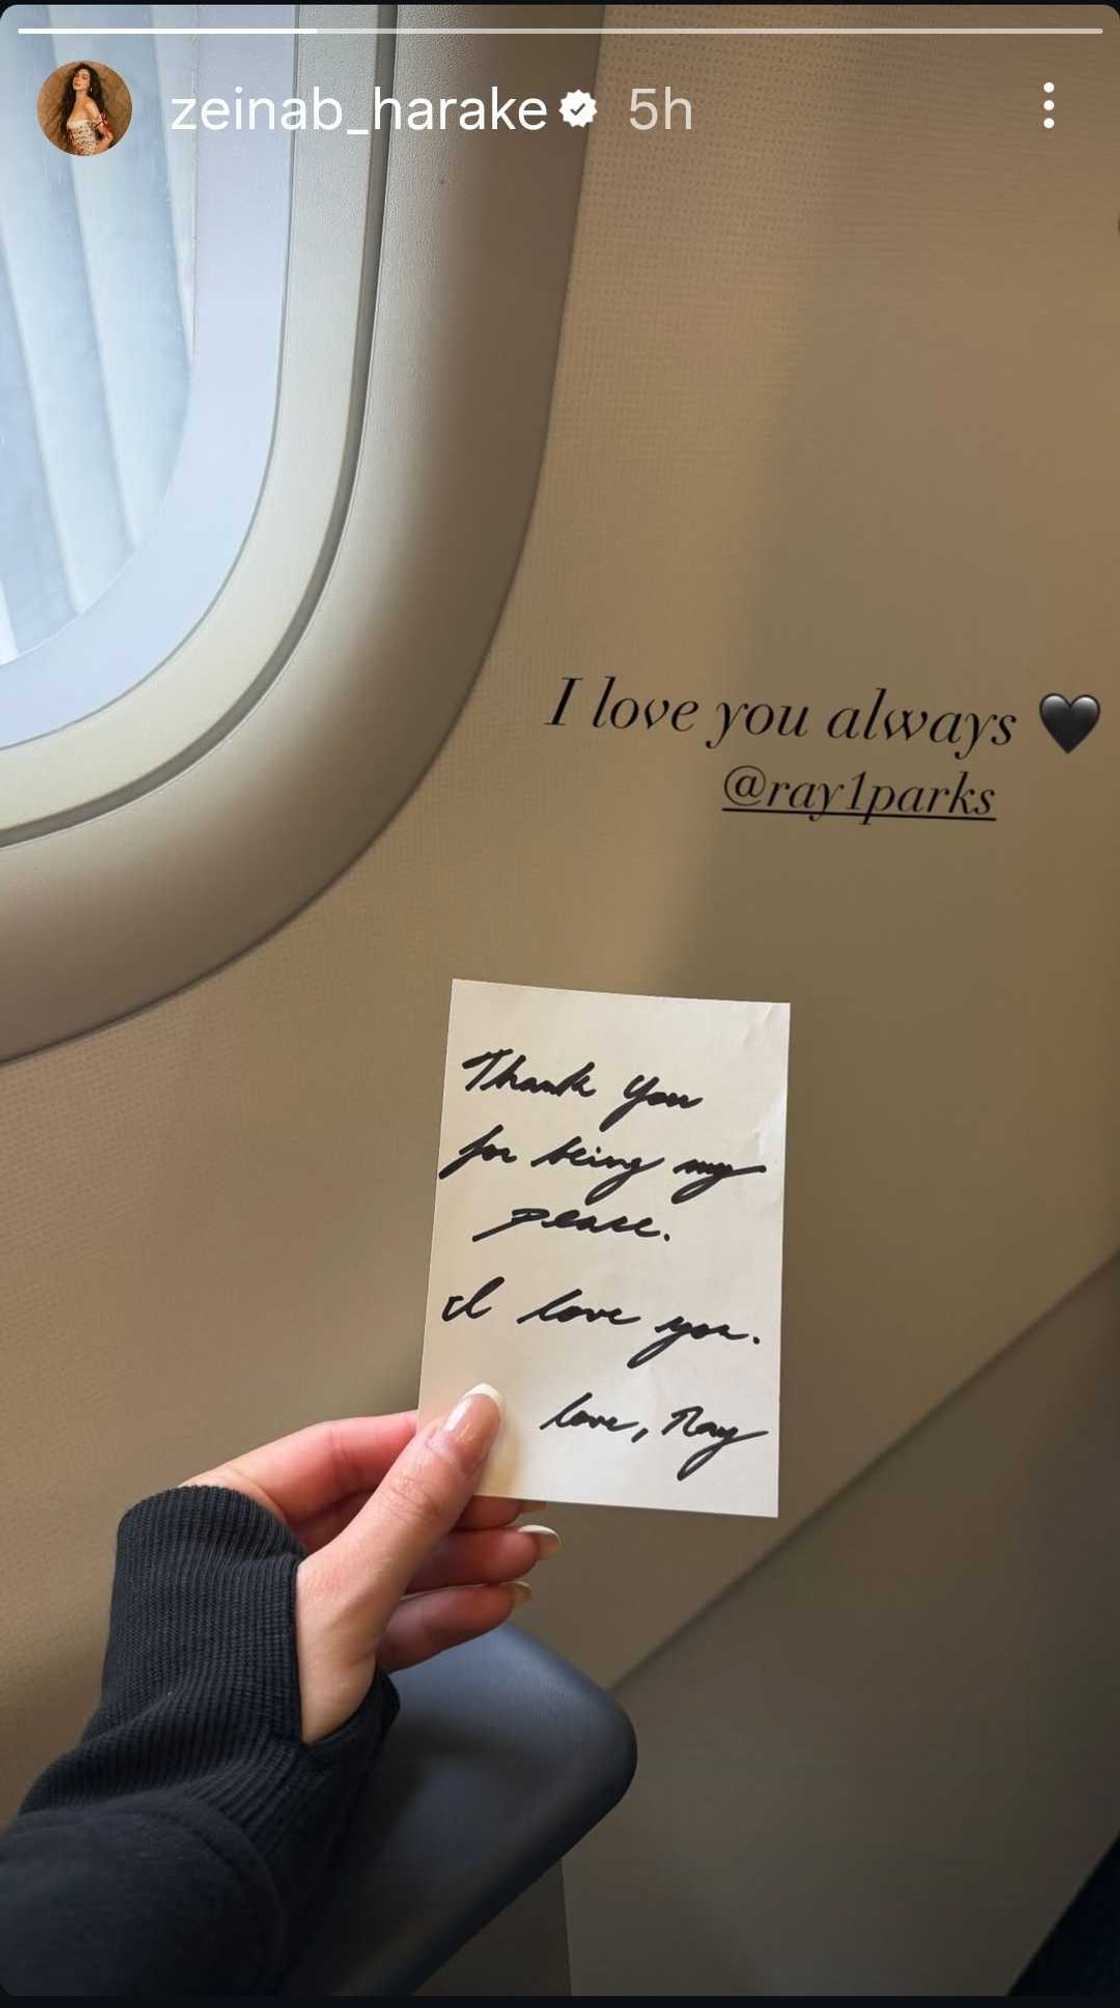 zeinab_harake 5h
I love you always 🖤
@ray1parks
Thank You
for being my
peace.
I love you.
love, Ray